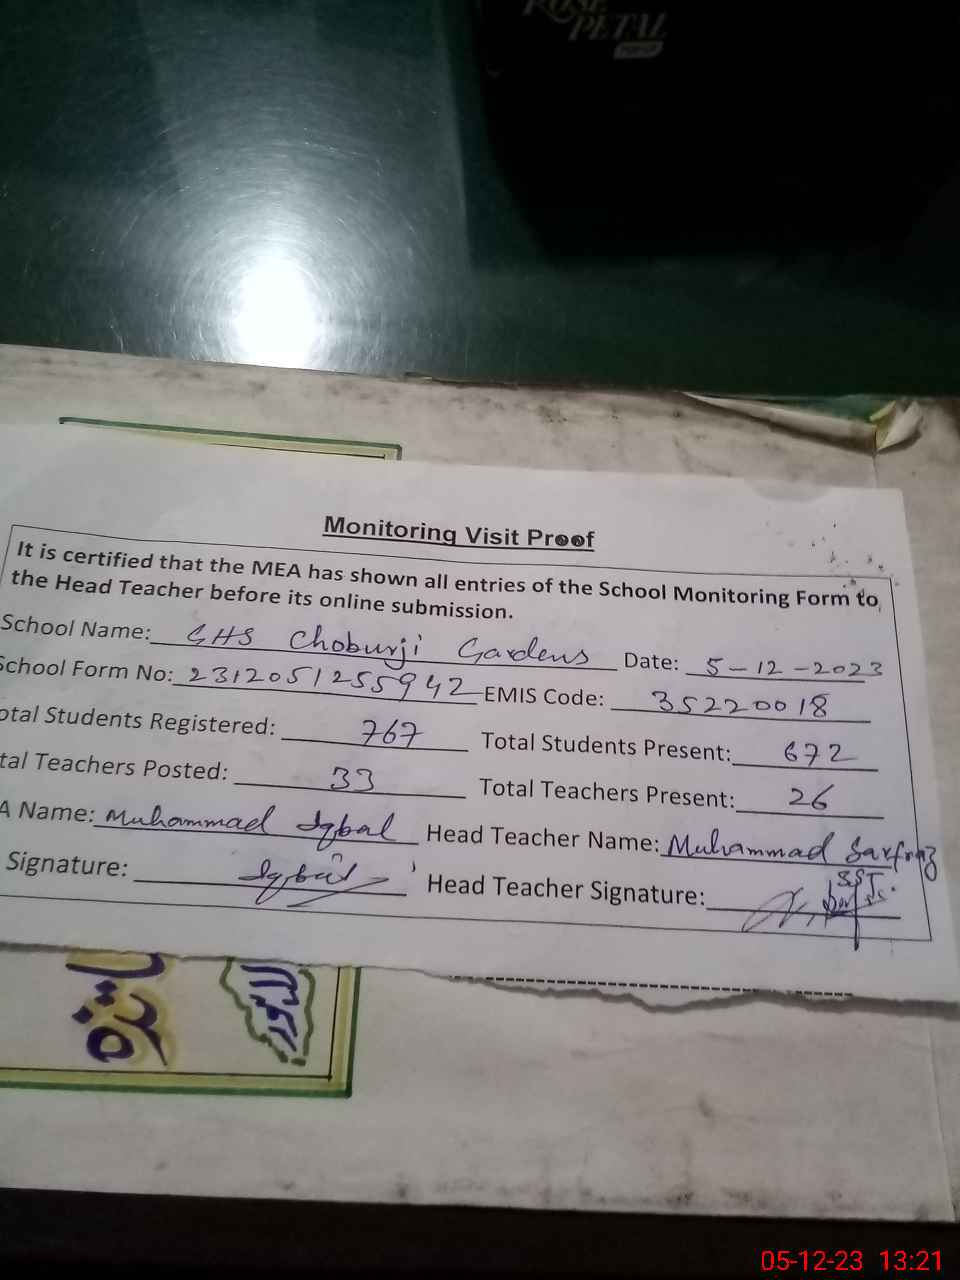 ROSE
PETAL
POP-UP
Monitoring Visit Proof
It is certified that the MEA has shown all entries of the School Monitoring Form to
the Head Teacher before its online submission.
School Name: GHS Choburji Gardens Date: 5-12-2023
School Form No: 2312051255942 EMIS Code: 35220018
otal Students Registered: 767 Total Students Present: 672
tal Teachers Posted: 33 Total Teachers Present: 26
A Name: Muhammad Iqbal Head Teacher Name: Muhammad Sarfraz
Signature: Iqbal Head Teacher Signature: SST
لاہور
05-12-23 13:21